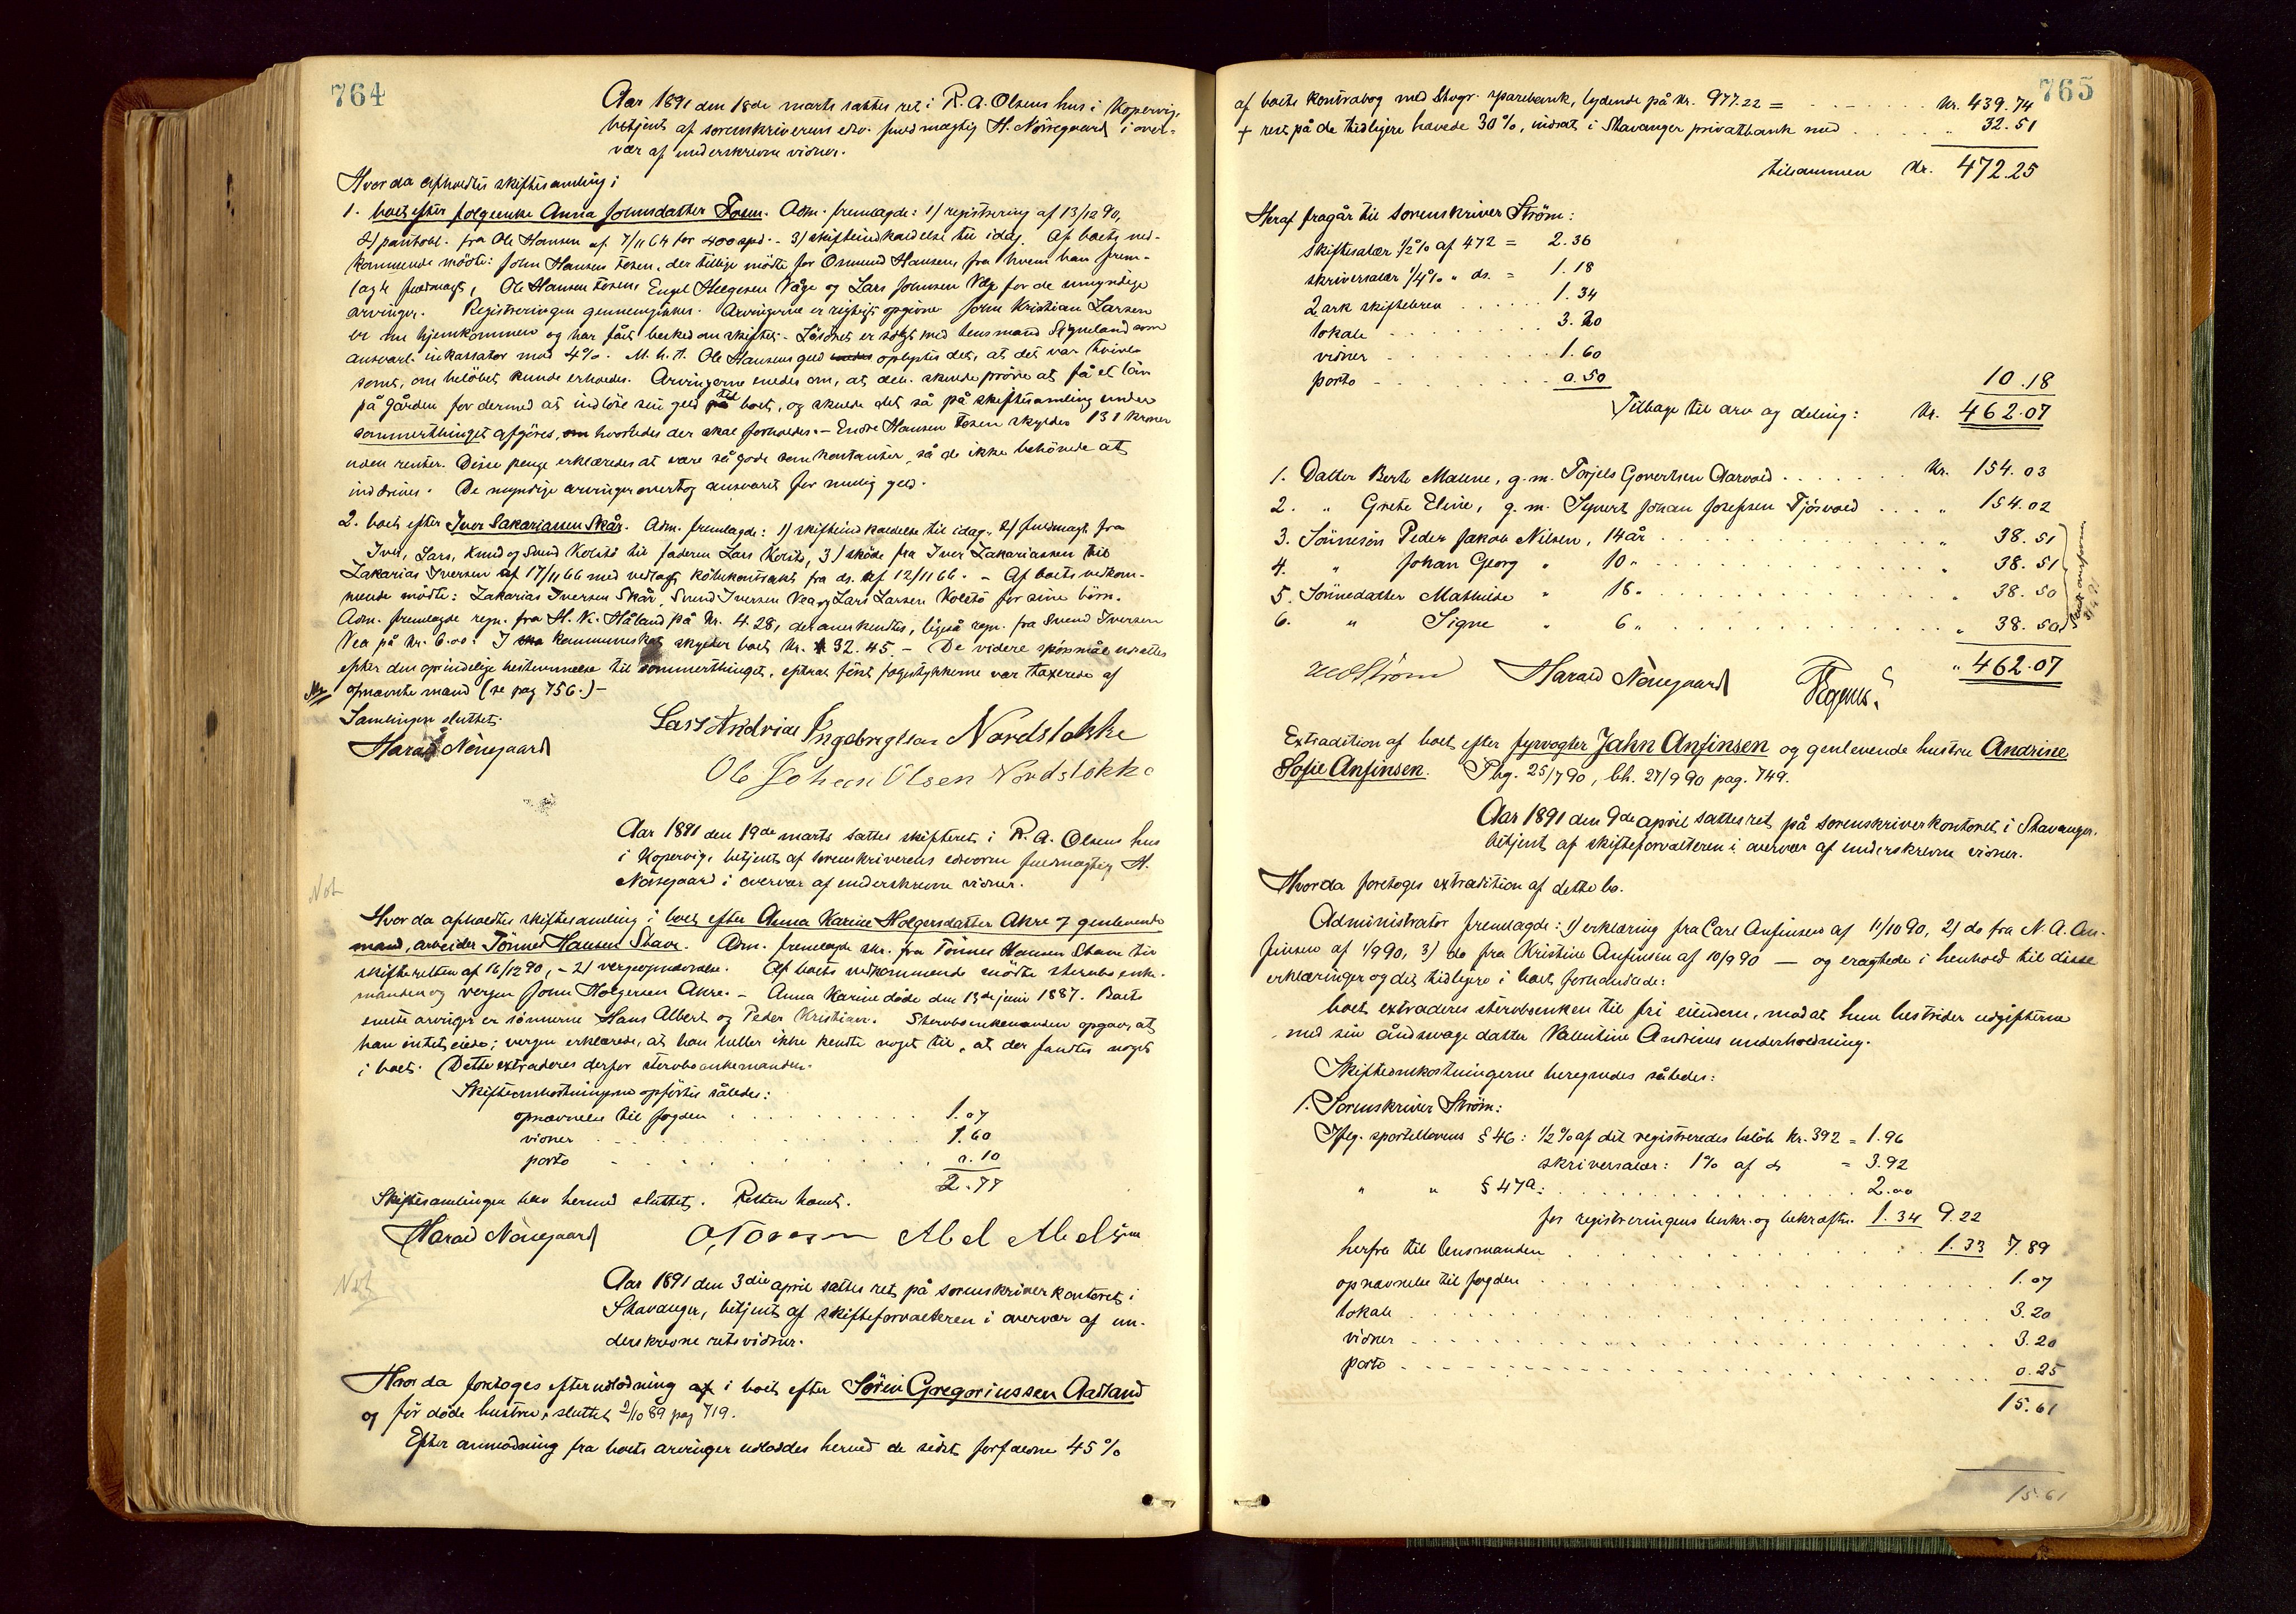 764
Aar 1891 den 18de marts sattes ret i R. A. Olsens hus i Kopervig,
betjent af sorenskriverens edsv. fuldmægtig H. Nörregaard i over-
vær af underskrevne vidner.
Hvorda afholdtes skiftesamling i
1. boet efter folgeenke Anna Johnsdatter Fosen. Adm. fremlagde: 1) registrering af 13/12 90,
2) pantobl. fra Ole Hansen af 7/11 64 for 400 spd. - 3) skifteindkaldelse til idag. Af boets ved-
kommende mödte: John Hansen Fosen, der tillige mödte for Osmund Hansen, fra hvem han frem-
lagde fuldmagt, Ole Hansen Fosen, Engel Helgesen Våge og Lars Johnsen Våge for de umyndige
arvinger. Registreringen gennemgikkes. Arvingerne er rigtigt opgivne. John Kristian Larsen
er nu hjemkommen og har fået besked om skiftet. Lösöret er solgt med lensmand Rygneland som
ansvarl. inkassator mod 4%. M. h. t. Ole Hansens geld oplystes det, at det var tvivl-
somt, om belöbet kunde erholdes. Arvingerne enedes om, at den. skulde pröve at få et lån
på gården for dermed at indlöse sin geld til boet, og skulde det så på skiftesamling under
sommerthinget afgöres, hvorledes der skal forholdes. - Endre Hansen Fosen skylder 131 kroner
uden renter. Disse penge erklæredes at være så gode som kontanter, så de ikke behövede at
inddrives. De myndige arvinger overtog ansvaret for mulig geld.
2. boet efter Iver Sakariassen Skår. Adm. fremlagde: 1) skifteindkaldelse til idag. 2) fuldmagt fra
Iver, Lars, Knud og Svend Kolstö til faderen Lars Kolstö, 3) sköde fra Iver Zakariassen til
Zakarias Iversen af 17/11 66 med vedlagt köbekontrakt fra ds. af 12/11 66. - Af boets vedkom-
mende mödte: Zakarias Iversen Skår, Svend Iversen Vea og Lars Larsen Kolstö for sine börn.
Adm. fremlagde regn. fra H. K. Håland på kr. 4.28, der anerkendtes, ligeså regn. fra Svend Iversen
Vea på kr. 6.00. I kommuneskat skylder boet kr. 32.45. - De videre spörsmål udsattes
efter den oprindelige bestemmelse til sommerthinget, efterat först jordstykkerne var taxerede af
opnævnte mænd (se pag 756.) -
Samlingen sluttet.
Harald Nöregaard
Lars Andrias Ingebrigtsen Nordstokke
Ole Johan Olsen Nordstokke
Aar 1891 den 19de marts sattes skifteret i R. A. Olsens hus
i Kopervig, betjent af sorenskriverens edsvorne fuldmægtig H.
Nöregaard i overvær af underskrevne vidner.
Not
Hvorda afholdtes skiftesamling i boet efter Anna Karine Holgersdatter Akre & genlevende
mand, arbeider Tönnes Hansen Stave. Adm. fremlagde skr. fra Tönnes Hansen Stave til
skifteretten af 16/12 90, - 2) vergeopnævnelse. Af boets vedkommende mödte sterboenke-
manden og vergen John Holgersen Akre. - Anna Karine döde den 13de juni 1887. Boets
eneste arvinger er sönnerne Hans Albert og Peder Kristian. Sterboenkemanden opgav, at
han intet eiede; vergen erklærede, at han heller ikke kendte noget til, at der fandtes noget
i boet. Dette extraderes derfor sterboenkemanden.
Skifteomkostningerne opförtes således:
opnævnelse til fogden . . . 1.07
vidner . . . 1.60
porto . . . 0.10
2.77
Skiftesamlingen blev hermed sluttet. Retten hævet.
Harald Nöregaard
Abel Abelsen
Not
Aar 1891 den 3die april sattes ret på sorenskriverkontoret i
Stavanger, betjent af skifteforvalteren i overvær af un-
derskrevne retsvidner.
Hvorda foretoges efterudlodning i boet efter Sören Gregoriussen Aadland
og för döde hustru, sluttet 2/10 89 pag 719.
Efter anmodning fra boets arvinger udloddes herved de sidst forfaldne 45%
765
af boets kontrabog med Stvgr. sparebank, lydende på kr. 977.22 = . . . kr. 439.74
+ rest på de tidligere hævede 30%, indsat i Stavanger privatbank med . . . " 32.51
tilsammen kr. 472.25
Heraf fragår til sorenskriver Ström:
skiftesalær 1/2% af 472 = 2.36
skriversalær 1/4% " ds. = 1.18
2 ark skiftebrev . . . 1.34
lokale . . . 3.20
vidner . . . 1.60
porto . . . 0.50 10.18
Tilbage til arv og deling: kr. 462.07
1. Datter Berte Malene, g. m. Torjels Govertsen Aarvold . . . kr. 154.03
2. " Grete Eline, g. m. Syvert Johan Josefsen Tjösvold . . . " 154.02
3. Sönnesön Peder Jakob Nilsen, 14 år . . . " 38.51
4. " Johan Georg " 10 " . . . " 38.51
5. Sönnedatter Mathilde " 18 " . . . " 38.50
6. " Signe " 6 " . . . " 38.50
" 462.07
Ström Harald Nöregaard
Extradition af boet efter fyrvogter Jahn Anfinsen og genlevende hustru Andrine
Sofie Anfinsen. Pbg. 25/7 90, bh. 27/9 90 pag. 749.
Aar 1891 den 9de april sattes ret på sorenskriverkontoret i Stavanger,
betjent af skifteforvalteren i overvær af underskrevne vidner.
Hvorda foretoges extradition af dette bo.
Administrator fremlagde: 1) erklæring fra Carl Anfinsen af 11/10 90, 2) do fra N. A. An-
finsen af 1/9 90, 3) do fra Kristine Anfinsen af 10/9 90 — og eragtede i henhold til disse
erklæringer og det tidligere i boet forhandlede:
boet extraderes sterboenken til fri eiendom, mod at hun bestrider udgifterne
med sin åndssvage datter Valentine Andrines underholdning.
Skifteomkostningerne beregnedes således:
1. Sorenskriver Ström:
Iflg. sportellovens § 46: 1/2% af det registreredes belöb kr. 392 = 1.96
skriversalær: 1% af ds = 3.92
" " § 47a: . . . 2.00
for registreringens beskr. og bekræftn. 1.34 9.22
herfra til lensmanden . . . 1.33 7.89
opnævnelse til fogden . . . 1.07
lokale . . . 3.20
vidner . . . 3.20
porto . . . 0.25
15.61
15.61